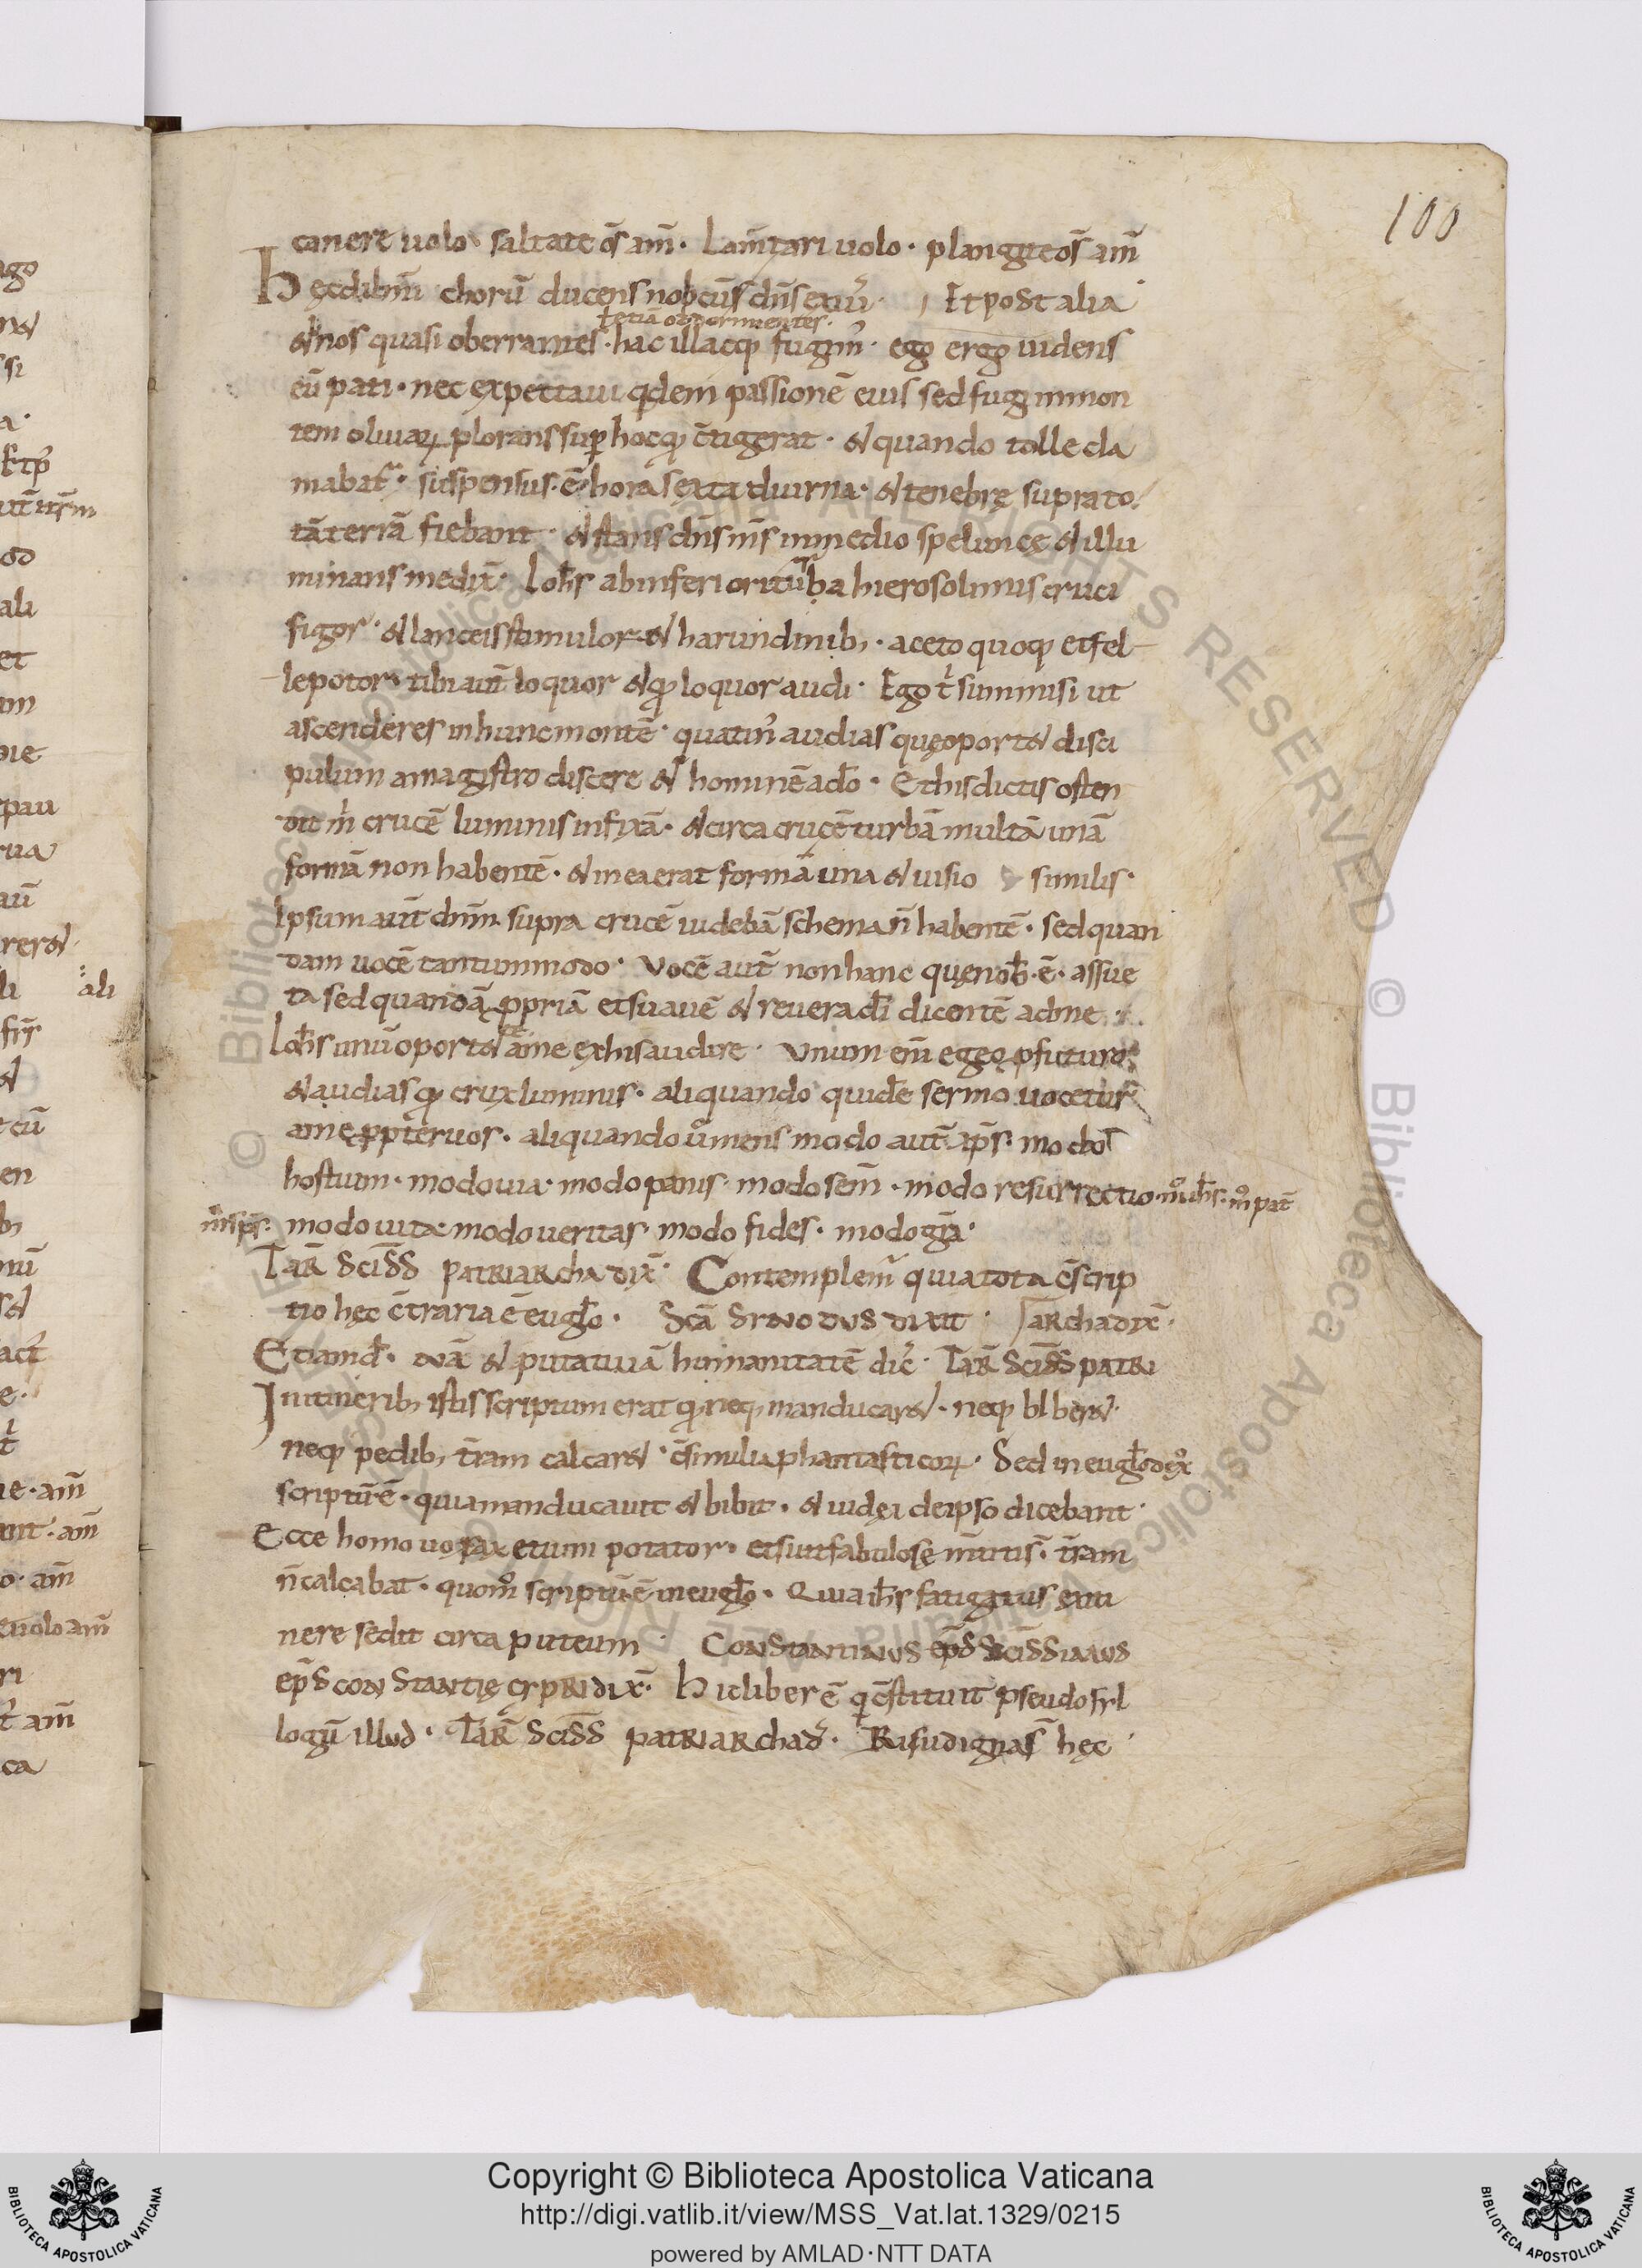 100
canere uolo saltate om̄s am̄. Lam̄tari uolo. plangite om̄s am̄
Hęc dilm̄i chorū ducens nobcūs dn̄s exiuͥ. Et post alia
ꝉ etiā obdormientes.
& nos quasi oberrantes. hac illacq; fugim᾽. ego ergo uidens
eū pati. nec expectaui qͥdem passionē eius sed fugi inmon
tem oliuaꝝ plorans suꝑ hocqđ c̄tigerat. & quando tolle cla
mabat᾽. suspensus. ē. hora sexta diurna. & tenebrę supra to
tā terrā fiebant. & stans dn̄s n̄s inmedio speluncę & illu
minans me dix̄. Ioh̄s abinferiori turba hierosolimis cruci
figor. & lanceis stimulor & harundinib;. aceto quoq; et fel
le potor. tibi aūt loquor & qđ loquor audi. Ego tͥ summisi ut
ascenderes in hunc montē. quatin᾽ audias quę oport& disci
pulum a magistro discere & hominē a dō. Et his dictis osten
dit mͥ crucē luminis infixā. & circa crucē turbā multā unā
formā non habentē. & in ea erat forma una & uisio similis.
Ipsum aūt dn̄m supra crucē uidebā schema n̄ habentē. sed quan
dam uocē tantummodo. Vocē aut̄ non hanc quę nob̄. ē. assue
ta sed quandā ꝓpriā et suauē & reuera dī dicentē ad me.
Ioh̄s unū oport& a me ex his audire. Vnum em̄ egeo ꝓfuturo
& audias qđ crux luminis. aliquando quidē sermo uocetur
a me ꝓpter uos. aliquando u᾽ mens modo aut̄ xp̄s. modo
hostium. modo uia. modo panis. modo sem̄. modo resurrectio. mͦ ih̄s. mͦ pat̄
mͦ sp̄s. modo uita modo ueritas modo fides. modo gr̄a.
Tar̄ scissS patriarcha dix̄. Contemplem᾽ quia tota c̄scrip
tio hęc c̄traria ē euglō. Sc̄a synodus dixit. archa dix̄.
Etiam d. nā & putatiuā humanitatē dic̄. Tar̄ scissS patri
Initinerib; istis scriptum erat qđ neq; manducar&. neq; biber&
neq; pedib; t̄ram calcar& c̄similia phantasticoꝝ. Sed in euglō dix
scriptū ē. quia manducauit & bibit. & iudęi de ipso dicebant
Ecce homo uorax et uini potator. et si ut fabulosę m̄titis. t̄ram
n̄ calcabat. quom᾽ scriptū ē in euglō. Quia ih̄s fatigatus ex iti
nere sedit circa puteum Constantinus ep̄s scissimus
ep̄s constantię cypri dix̄. Hic liber ē qͥ c̄stituit pseudo syl
logū illud. Tar̄ scissS patriarcha d. Risu dignas hęc
Copyright © Biblioteca Apostolica Vaticana
http://digi.vatlib.it/view/MSS_Vat.lat.1329/0215
powered by AMLAD·NTT DATA
BIBLIOTECA APOSTOLICA VATICANA
BIBLIOTECA APOSTOLICA VATICANA